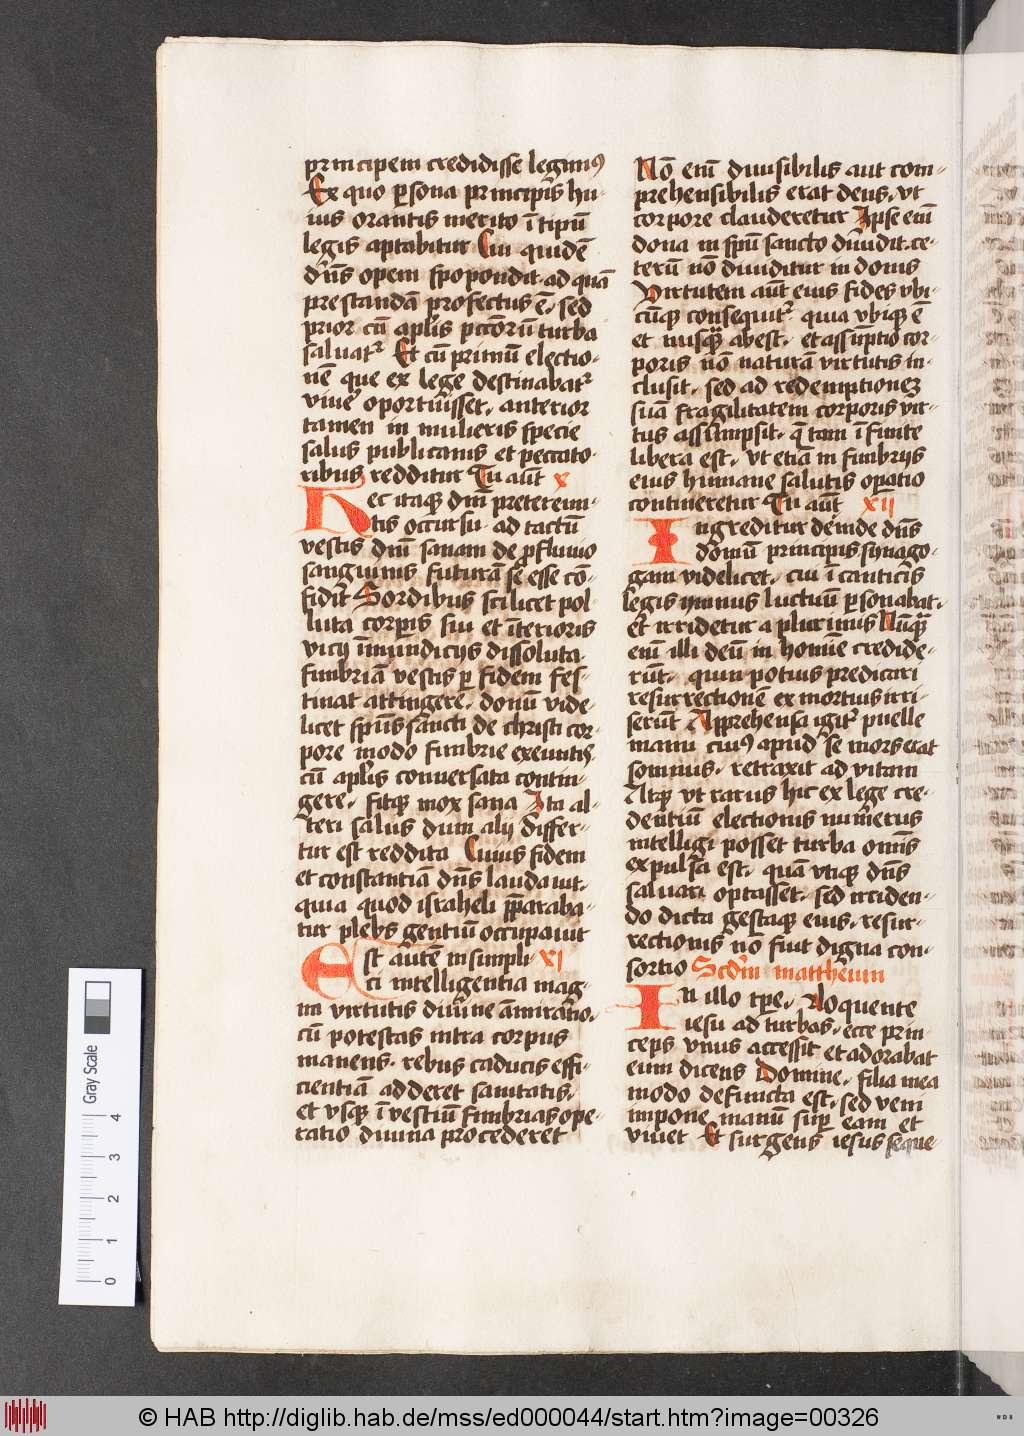 principem credidisse legimꝰ
Ex quo ꝑsona principis hu-
ius orantis merito ī tipū
legis aptabitur Cui quidē
dn̄s opem spopondit. ad quā
prestandā profectus ē. sed
prior cū apl̄is pcc̄orū turba
saluat᷑ Et cū primū electio-
nē que ex lege destinabat᷑
viue᷑ oportuisset. anterior
tamen in mulieris specie
salus publicanis et peccato-
ribus redditur Tu aūt x
Hec itaqꝫ dn̄m pretereun-
tis occursu. ad tactū
vestis dn̄i sanam de ꝓfluuio
sanguinis futurā se esse cō-
fidit Sordibus scilicet pol-
luta corꝑis sui et īterioris
vicij īmundicijs dissoluta.
fimbriā vestis ꝑ fidem fes-
tinat attingere. donū vide-
licet sp̄us sancti de christi cor-
pore modo fimbrie exeuntis.
cū apl̄is conuersata contin-
gere. fitqꝫ mox sana Ita al-
teri salus dum alij differ-
tur est reddita Cuius fidem
et constantiā dn̄s laudauit.
quia quod israheli p̄paraba-
tur plebs gentiū occupauit
Est autē in simpli- xi
ci intelligentia mag-
na virtutis diuine āmiratio.
cū potestas intra corpus
manens. rebus caducis effi-
cientiā adderet sanitatis.
et vsqꝫ ī vestiū fimbrias ope-
ratio diuina procederet
Nō enī diuisibilis aut com-
prehensibilis erat deus. vt
corpore clauderetur Ipse enī
dona in spū sancto diuidit. ce-
terū nō diuiditur in donis
Virtutem aūt eius fides vbi-
cūqꝫ consequit᷑. quia vbiqꝫ ē
et nusqꝫ̄ abest. et assūptio cor-
poris nō naturā virtutis in-
clusit. sed ad redemptionem
suā fragilitatem corporis vir-
tus assumpsit. q̄ tam īfinite
libera est. vt etiā in fimbrijs
eius humane salutis oꝑatio
contineretur Tu aūt xii
Ingreditur deinde dn̄s
domū principis synago-
gam videlicet. cui ī canticis
legis ymnus luctuū ꝑsonabat.
et irridetur a plurimis Nūqꝫ̄
enī illi deū in homīe credide-
rūt. quin potius predicari
resurrectionē ex mortuis irri-
serūt Apprehensa igit᷑ puelle
manu cuiꝰ apud se mors erat
somnus. retraxit ad vitam
Atqꝫ vt rarus hic ex lege cre-
dentiū electionis numerus
intelligi posset turba omīs
expulsa est. quā vtiqꝫ dn̄s
saluari optasset. sed irriden-
do dicta gestaqꝫ eius. resur-
rectionis nō fuit digna con-
sortio Scd̄m mattheum
In illo tꝑe. Loquente
iesu ad turbas. ecce prin-
ceps vnus accessit et adorabat
eum dicens Domine. filia mea
modo defuncta est. sed veni
impone manū suꝑ eam et
viuet Et surgens iesus seque-
Gray Scale
0 1 2 3 4
© HAB http://diglib.hab.de/mss/ed000044/start.htm?image=00326